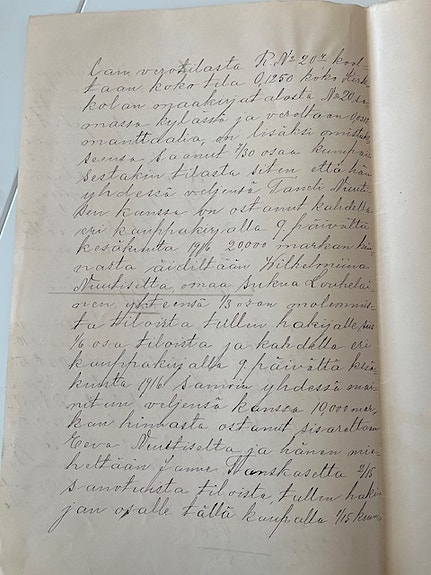 taan koko tila 0,1250 koko Kirk-
kolan maakirjatalosta No 20 sa-
massa kylässä ja veroltaan
manttaalia, on lisäksi omistuk-
seensa saanut 7/30 osaa
tilasta siten että hän
yhdessä veljensä Taneli Nuuti-
sen kanssa on ostanut kahdella
eri kauppakirjalla 9 päivältä
kesäkuuta 1916 20,000 markan hin-
nasta äidiltään Wilhelmiina
Nuutiselta, omaa sukua Louhelai-
nen yhteensä 1/3 osan molemmis-
ta tiloista tullen hakijalle
1/6 osa tiloista ja kahdella eri
kauppakirjalla 9 päivältä kesä-
kuuta 1916 samoin yhdessä mai-
nitun veljensä kanssa 10,000 mar-
kan hinnasta ostanut sisareltaan
Eeva Nuutiselta ja hänen mie-
heltään Janne Hanskaselta 2/15
sanotuista tiloista, tullen haki-
jan osalle tällä kaupalla 1/15